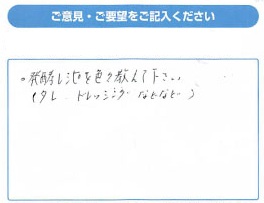 ご意見・ご要望をご記入ください
。発酵レシピを色々教えて下さい
(タレ ドレッシング などなど)